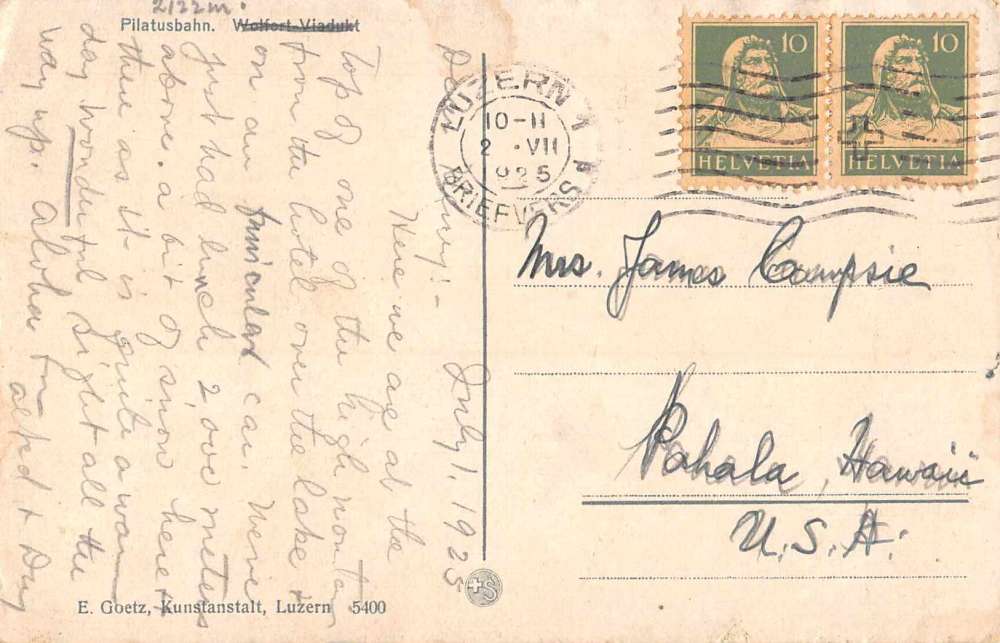 2122m.
Pilatusbahn. Wolfort-Viadukt
July 1, 1925
Here we are at the
Top of one of the high mountain
from the hotel over the lake &
on an funicular car.
just had lunch 2 over meters
above. a bit of snow here &
there as it is quite a warm
day. Wonderful sight all the
way up. Aloha from
alfred &
LUZERN
10-11
2 . VII
1925
BRIEFVERS
10
HELVETIA
10
HELVETIA
Mrs. James Campsie
Pahala, Hawaii
U.S.A.
E. Goetz, Kunstanstalt, Luzern 5400